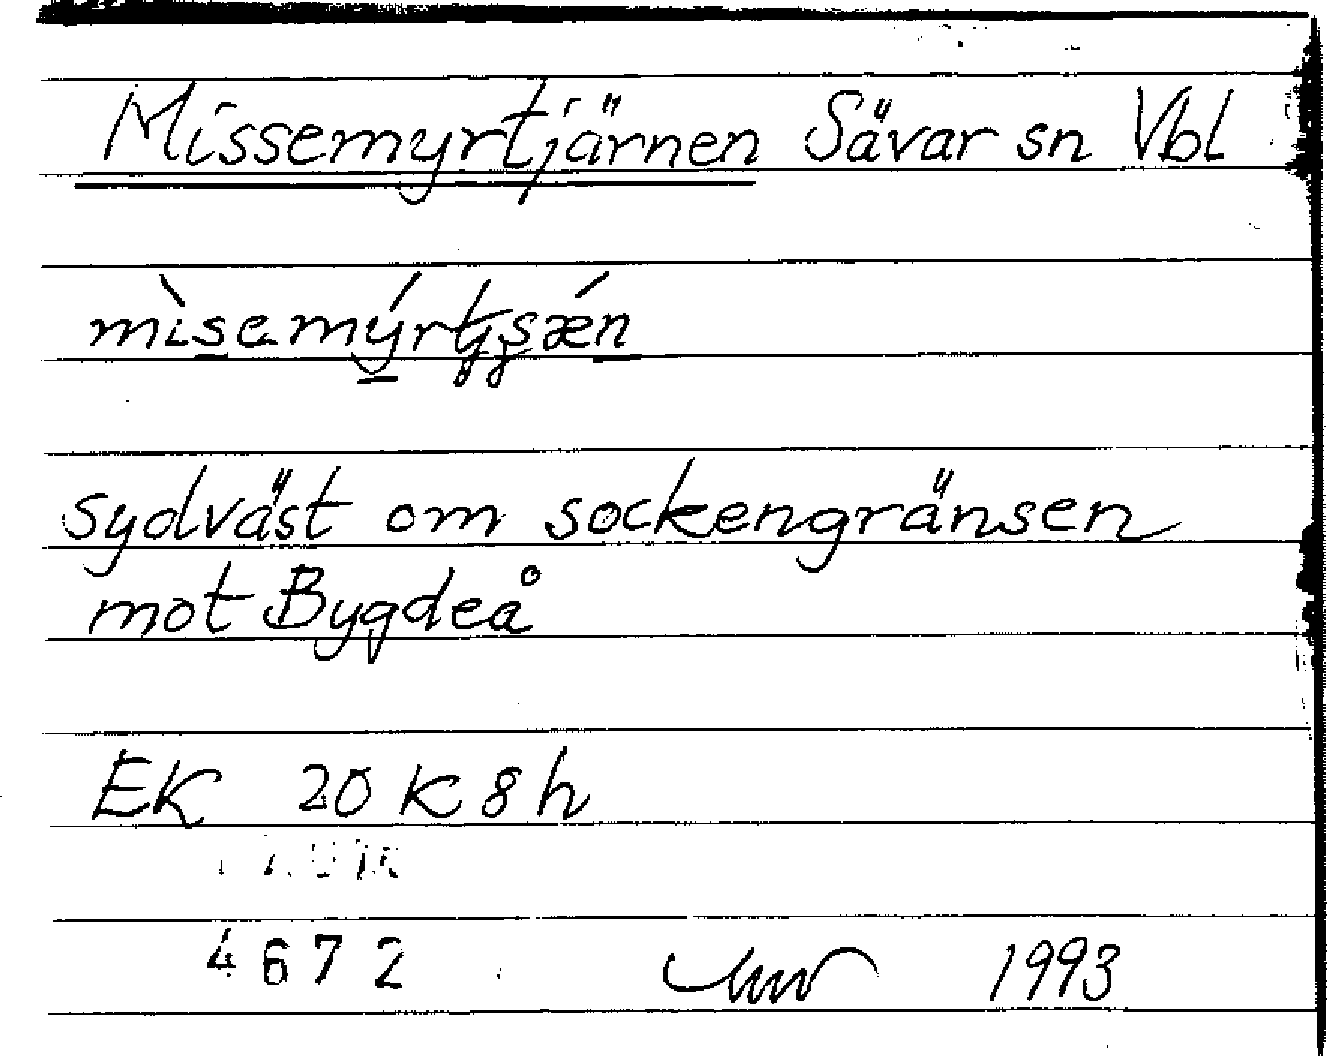 Missemyrtjärnen Sävar sn Vbl
sydväst om sockengränsen
mot Bygdeå
EK 20 K 8 h
4672 1993